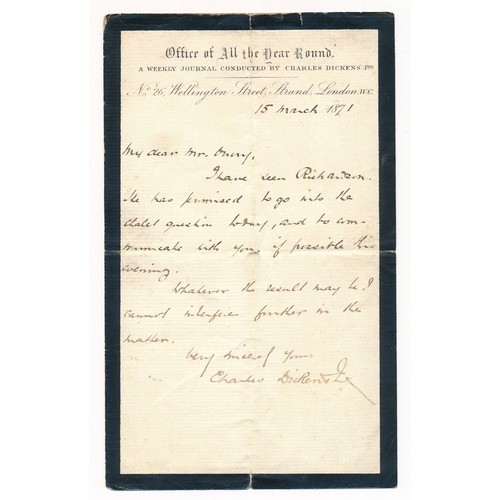 Office of All the Year Round.
A WEEKLY JOURNAL CONDUCTED BY CHARLES DICKENS JNR.
No. 26, Wellington Street, Strand, London. W.C.
15 March 1871
My dear Mr. Drury,
I have seen Richardson.
He has promised to go into the
chalet question today, and to com-
municate with you, if possible this
evening.
Whatever the result may be I
cannot interfere further in the
matter.
Very sincerely yours
Charles Dickens Jr